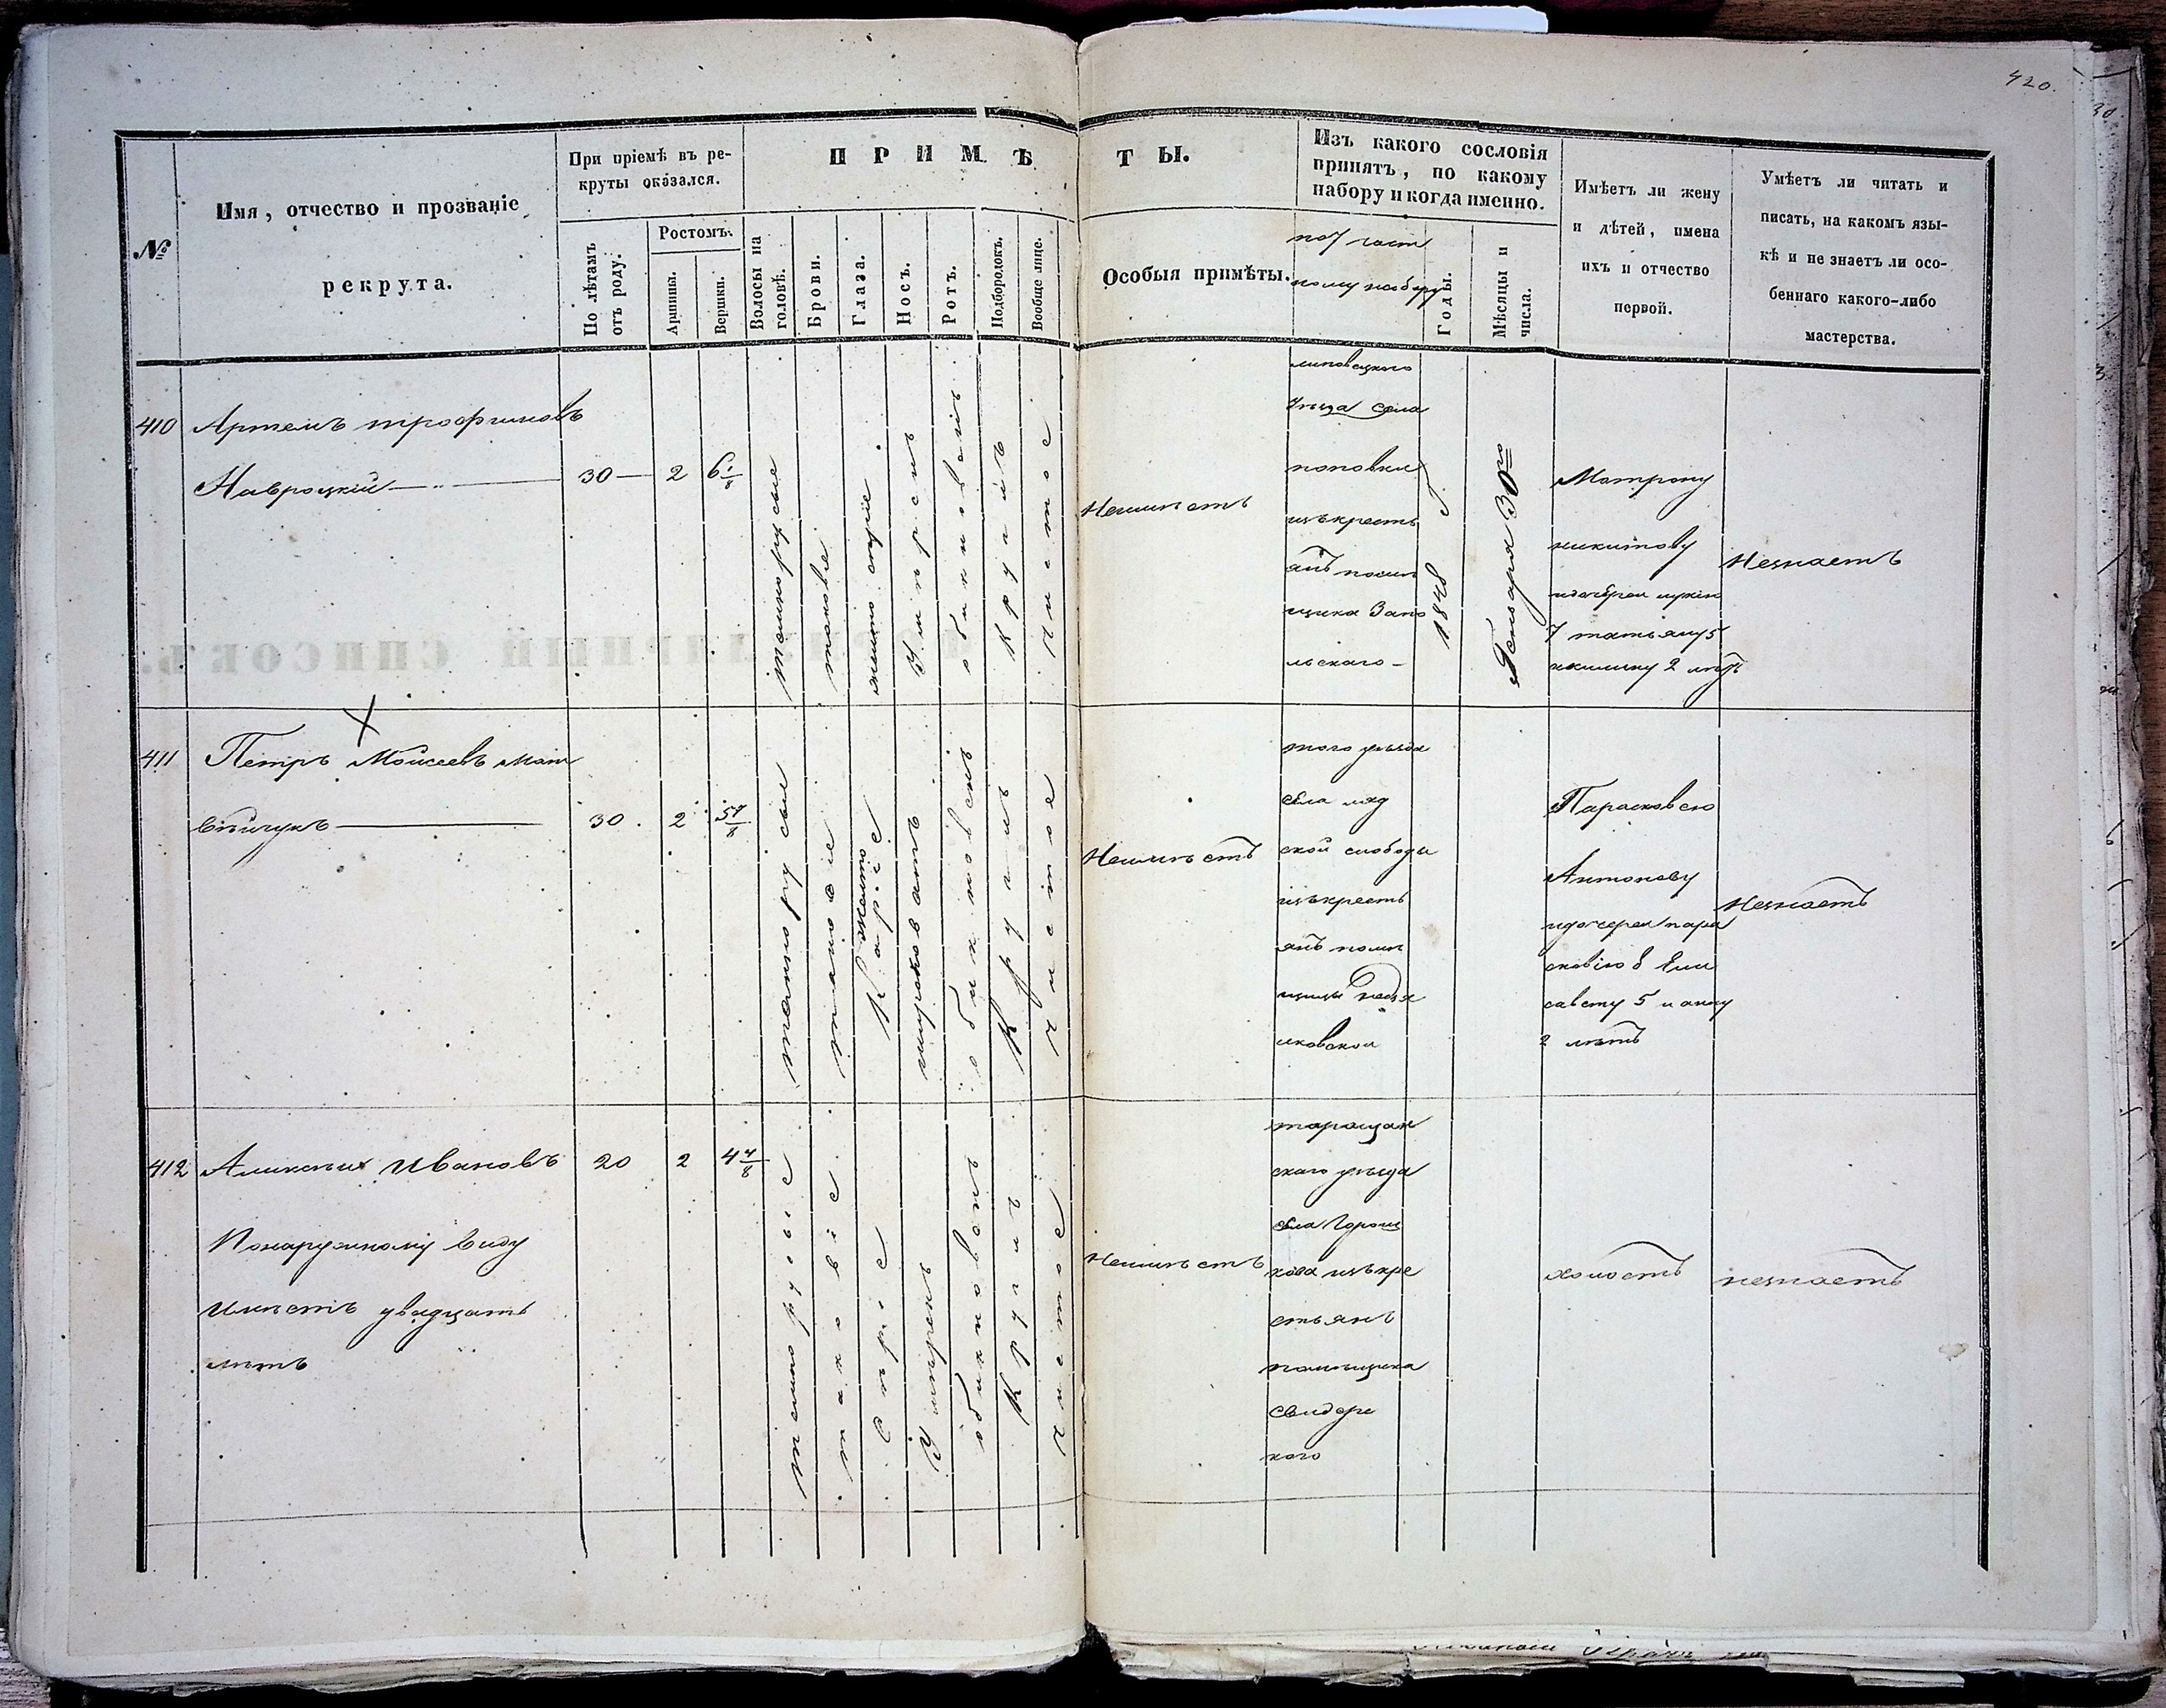 420.
№
Имя, отчество и прозваніе
рекрута.
При пріемѣ въ ре-
круты оказался.
По лѣтамъ
отъ роду.
Ростомъ.
Аршины.
Вершки.
ПРИМѢТЫ.
Волосы на
головѣ.
Брови.
Глаза.
Носъ.
Ротъ.
Подбородокъ.
Вообще лице.
Особыя примѣты.
Изъ какого сословія
принятъ, по какому
набору и когда именно.
по 7 част
ному набору
Годы.
Мѣсяцы и
числа.
Имѣетъ ли жену
и дѣтей, имена
ихъ и отчество
первой.
Умѣетъ ли читать и
писать, на какомъ язы-
кѣ и не знаетъ ли осо-
беннаго какого-либо
мастерства.
410
Артемъ трофимовъ
Навроцкій
30
2
6 1/8
темнорусые
таковые
жолто сѣріе
Умѣренъ
обикновенъ
Круглъ
Чистое
Неимѣетъ
липовецкого
Уѣзда села
поповки
изъкресть
янъ помѣ
щика Запо
льскаго
1848
Генваря 30го
Матрону
никитову
7 татьяну 5
2 лѣтъ
Незнаетъ
411
Петръ Моисеевъ мат
вѣйчукъ
30.
2
5 7/8
темнорусые
таковіе
жолто
Каріе
широковатъ
обикновенъ
Круглъ
чистое
Неимѣетъ
того уѣзда
села ляд
ской слободы
изъкресть
янъ помѣ
щицы
Парасковею
Антонову
идочерей пара
сковію 8 Ели
савету 5 и анну
2 лѣтъ
Незнаетъ
412
Аликсѣй Ивановъ
Понаружному виду
имѣетъ двадцать
лѣтъ
20
2
4 4/8
темнорусые
таковіе
Сѣріе
Умѣренъ
обикновенъ
Круглъ
чистое
Неимѣетъ
таращан
скаго уѣзда
села Горош
кова изъкре
стьянъ
помѣщика
Свидерс
каго
холостъ
незнаетъ